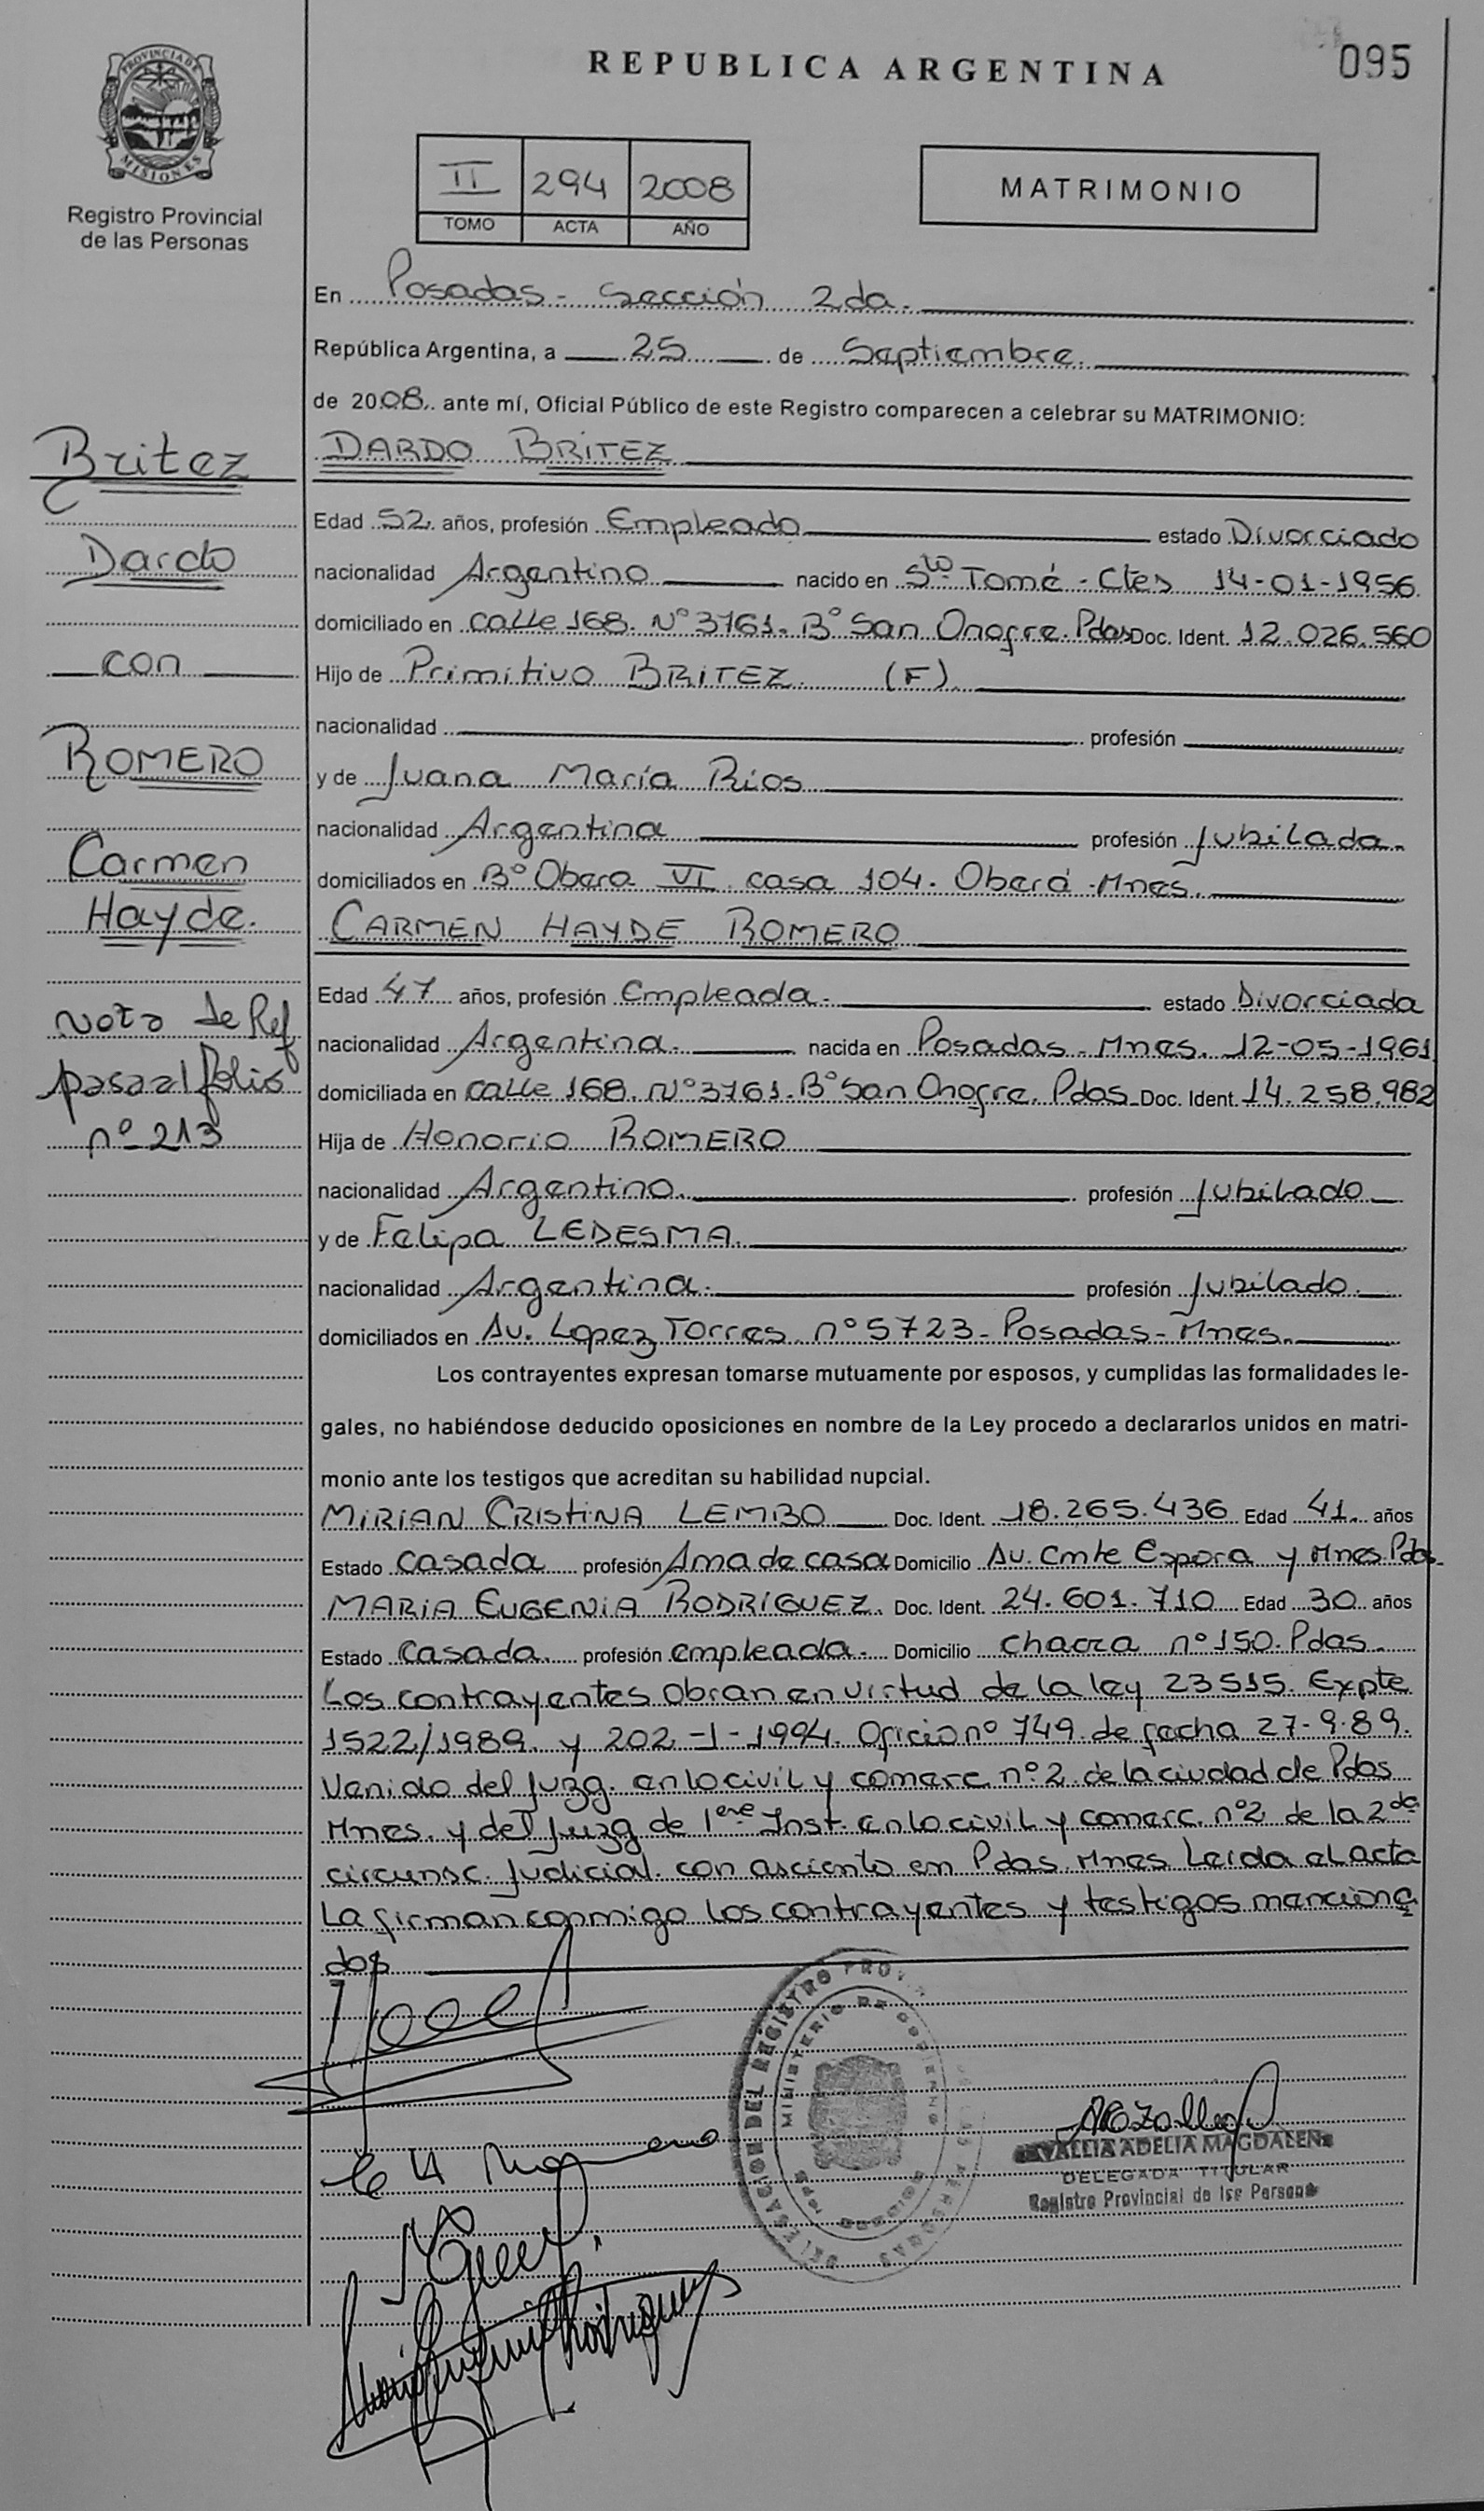 REPUBLICA ARGENTINA
095
PROVINCIA DE
MISIONES
Registro Provincial
de las Personas
II 294 2008
TOMO ACTA AÑO
MATRIMONIO
En Posadas - Sección 2da.
República Argentina, a 25 de Septiembre.
de 2008. ante mí, Oficial Público de este Registro comparecen a celebrar su MATRIMONIO:
Britez
DARDO BRITEZ
Edad 52. años, profesión Empleado estado Divorciado
Dardo
nacionalidad Argentino nacido en Sto. Tomé - Ctes 14-01-1956
domiciliado en calle 168. Nº 3761. Bº San Onofre. Pdas Doc. Ident. 12.026.560
con
Hijo de Primitivo BRITEZ. (F).
nacionalidad profesión
ROMERO
y de Juana María Rios
nacionalidad Argentina profesión Jubilada.
Carmen
domiciliados en Bº Obera VI casa 104. Oberá - Mnes.
Hayde.
CARMEN HAYDE ROMERO
Edad 47 años, profesión Empleada. estado Divorciada
Nota de Ref
nacionalidad Argentina. nacida en Posadas - Mnes. 12-05-1961
pasa al folio
domiciliada en calle 168. Nº 3761. Bº San Onofre. Pdas. Doc. Ident. 14.258.982
nº 213
Hija de Honorio ROMERO
nacionalidad Argentino. profesión Jubilado
y de Felipa LEDESMA.
nacionalidad Argentina. profesión Jubilado.
domiciliados en Av. Lopez Torres. nº 5723 - Posadas - Mnes.
Los contrayentes expresan tomarse mutuamente por esposos, y cumplidas las formalidades le-
gales, no habiéndose deducido oposiciones en nombre de la Ley procedo a declararlos unidos en matri-
monio ante los testigos que acreditan su habilidad nupcial.
MIRIAN CRISTINA LEMBO Doc. Ident. 18.265.436 Edad 41. años
Estado Casada profesión Ama de casa Domicilio Av. Cmte Espora y Mnes Pdas.
MARIA EUGENIA RODRIGUEZ. Doc. Ident. 24.601.710 Edad 30 años
Estado Casada. profesión empleada. Domicilio Chacra nº 150. Pdas.
Los contrayentes obran en virtud de la ley 23515. Expte
1522/1989. y 202-1-1994. Oficio nº 749. de fecha 27-9-89.
Venido del Juzg. en lo civil y comerc nº 2. de la ciudad de Pdas
Mnes. y del Juzg de 1ere Inst. en lo civil y comerc. nº 2 de la 2da
circunsc. Judicial. con asciento en Pdas Mnes Leida el acta
La firman conmigo los contrayentes y testigos menciona
dos
DELEGACION DEL REGISTRO PROV
DE LAS PERSONAS
MINISTERIO DE GOBIERNO
ADELIA MAGDALENA
DELEGADA TITULAR
Registro Provincial de las Personas